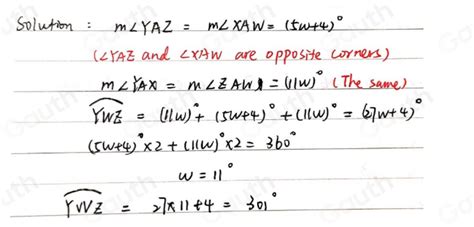 Solution : m∠YAZ = m∠XAW = (5w+4)°
(∠YAZ and ∠XAW are opposite corners)
m∠YAX = m∠ZAW = (11w)° (The same)
YWZ = (11w)° + (5w+4)° + (11w)° = (27w+4)°
(5w+4)°×2 + (11w)°×2 = 360°
w = 11°
YWZ = 27×11+4 = 301°
Gauth
Gauth
Gauth
Gauth